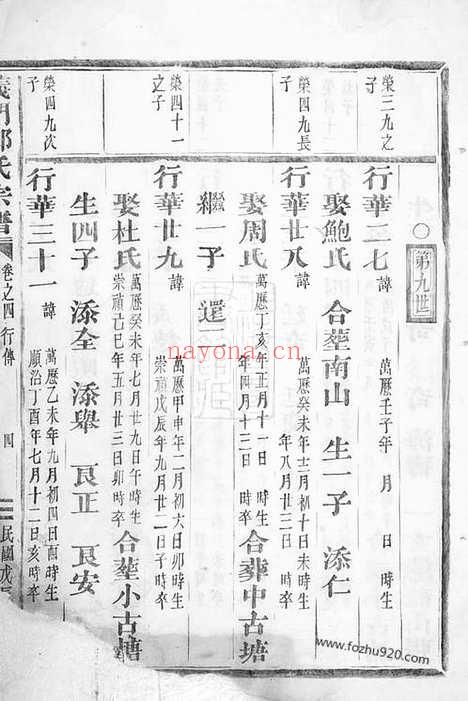 ○第九世
榮三九之子
行華二七 諱 萬曆壬子年 月 日 時生
娶鮑氏 合塟南山 生一子 添仁
榮四九長子
行華廿八 諱 萬曆癸未年十二月初十日未時生
年八月廿三日 時卒
娶周氏 萬曆丁亥年正月十一日 時生
年四月十三日 時卒 合葬中古塘
繼一子 還二
榮四十一之子
行華廿九 諱 萬曆甲申年二月初六日卯時生
崇禎戊辰年九月廿二日子時卒
娶杜氏 萬曆癸未年七月廿九日午時生
崇禎己巳年五月廿三日卯時卒 合塟小古塘
生四子 添全 添舉 良正 良安
榮四九次子
行華三十一 諱 萬曆乙未年九月初四日酉時生
順治丁酉年七月十二日亥時卒
義門鄭氏宗譜 卷之四行傳 四 民國戊
nayona.cn
www.fozhu920.com